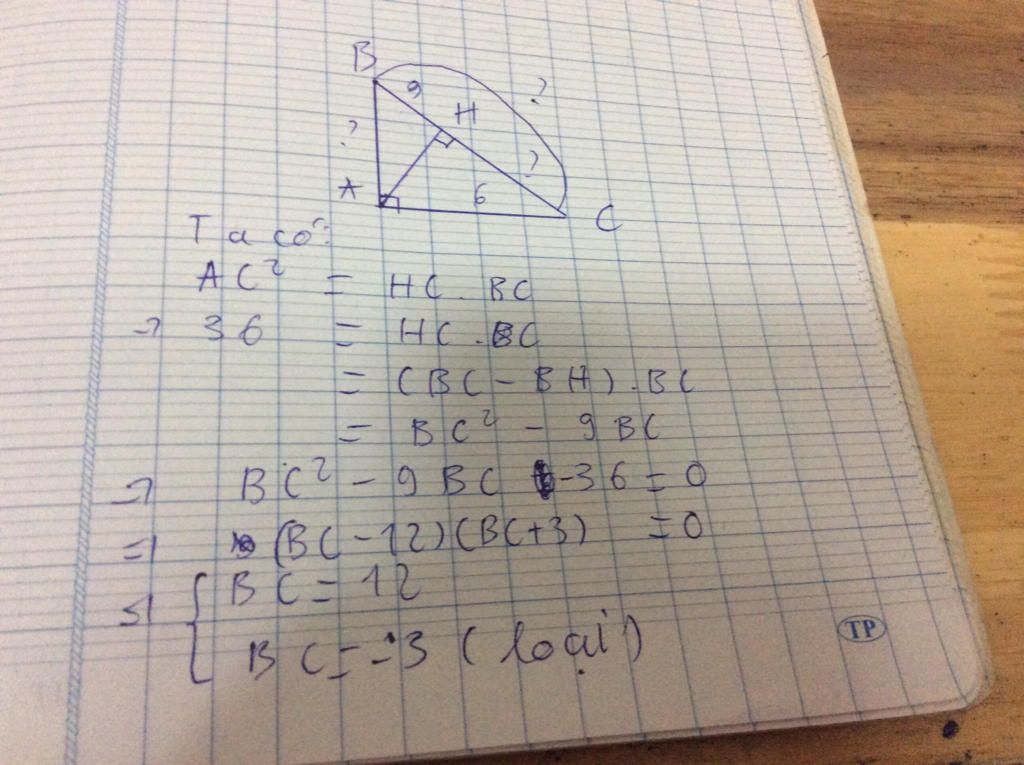 B
9
?
H
?
?
A
6
C
Ta có:
AC² = HC . BC
→ 36 = HC . BC
= (BC - BH) . BC
= BC² - 9BC
→ BC² - 9BC - 36 = 0
(BC - 12)(BC + 3) = 0
BC = 12
BC = -3 (loại)
TP